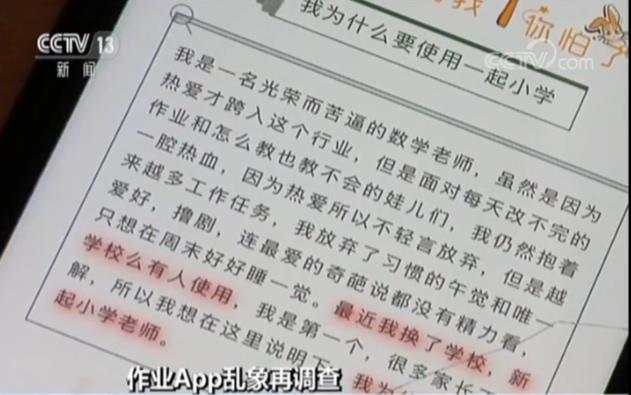 CCTV 13
新闻
CCTV
你怕
我为什么要使用一起小学
我是一名光荣而苦逼的数学老师，虽然是因为
热爱才跨入这个行业，但是面对每天改不完的
作业和怎么教也教不会的娃儿们，我仍然抱着
一腔热血，因为热爱所以不轻言放弃，但是越
来越多工作任务，我放弃了习惯的午觉和唯一
爱好，撸剧，连最爱的奇葩说都没有精力看，
只想在周末好好睡一觉。最近我换了学校，新
学校么有人使用，我是第一个，很多家长
解，所以我想在这里说明下，我为
起小学老师。
作业App乱象再调查